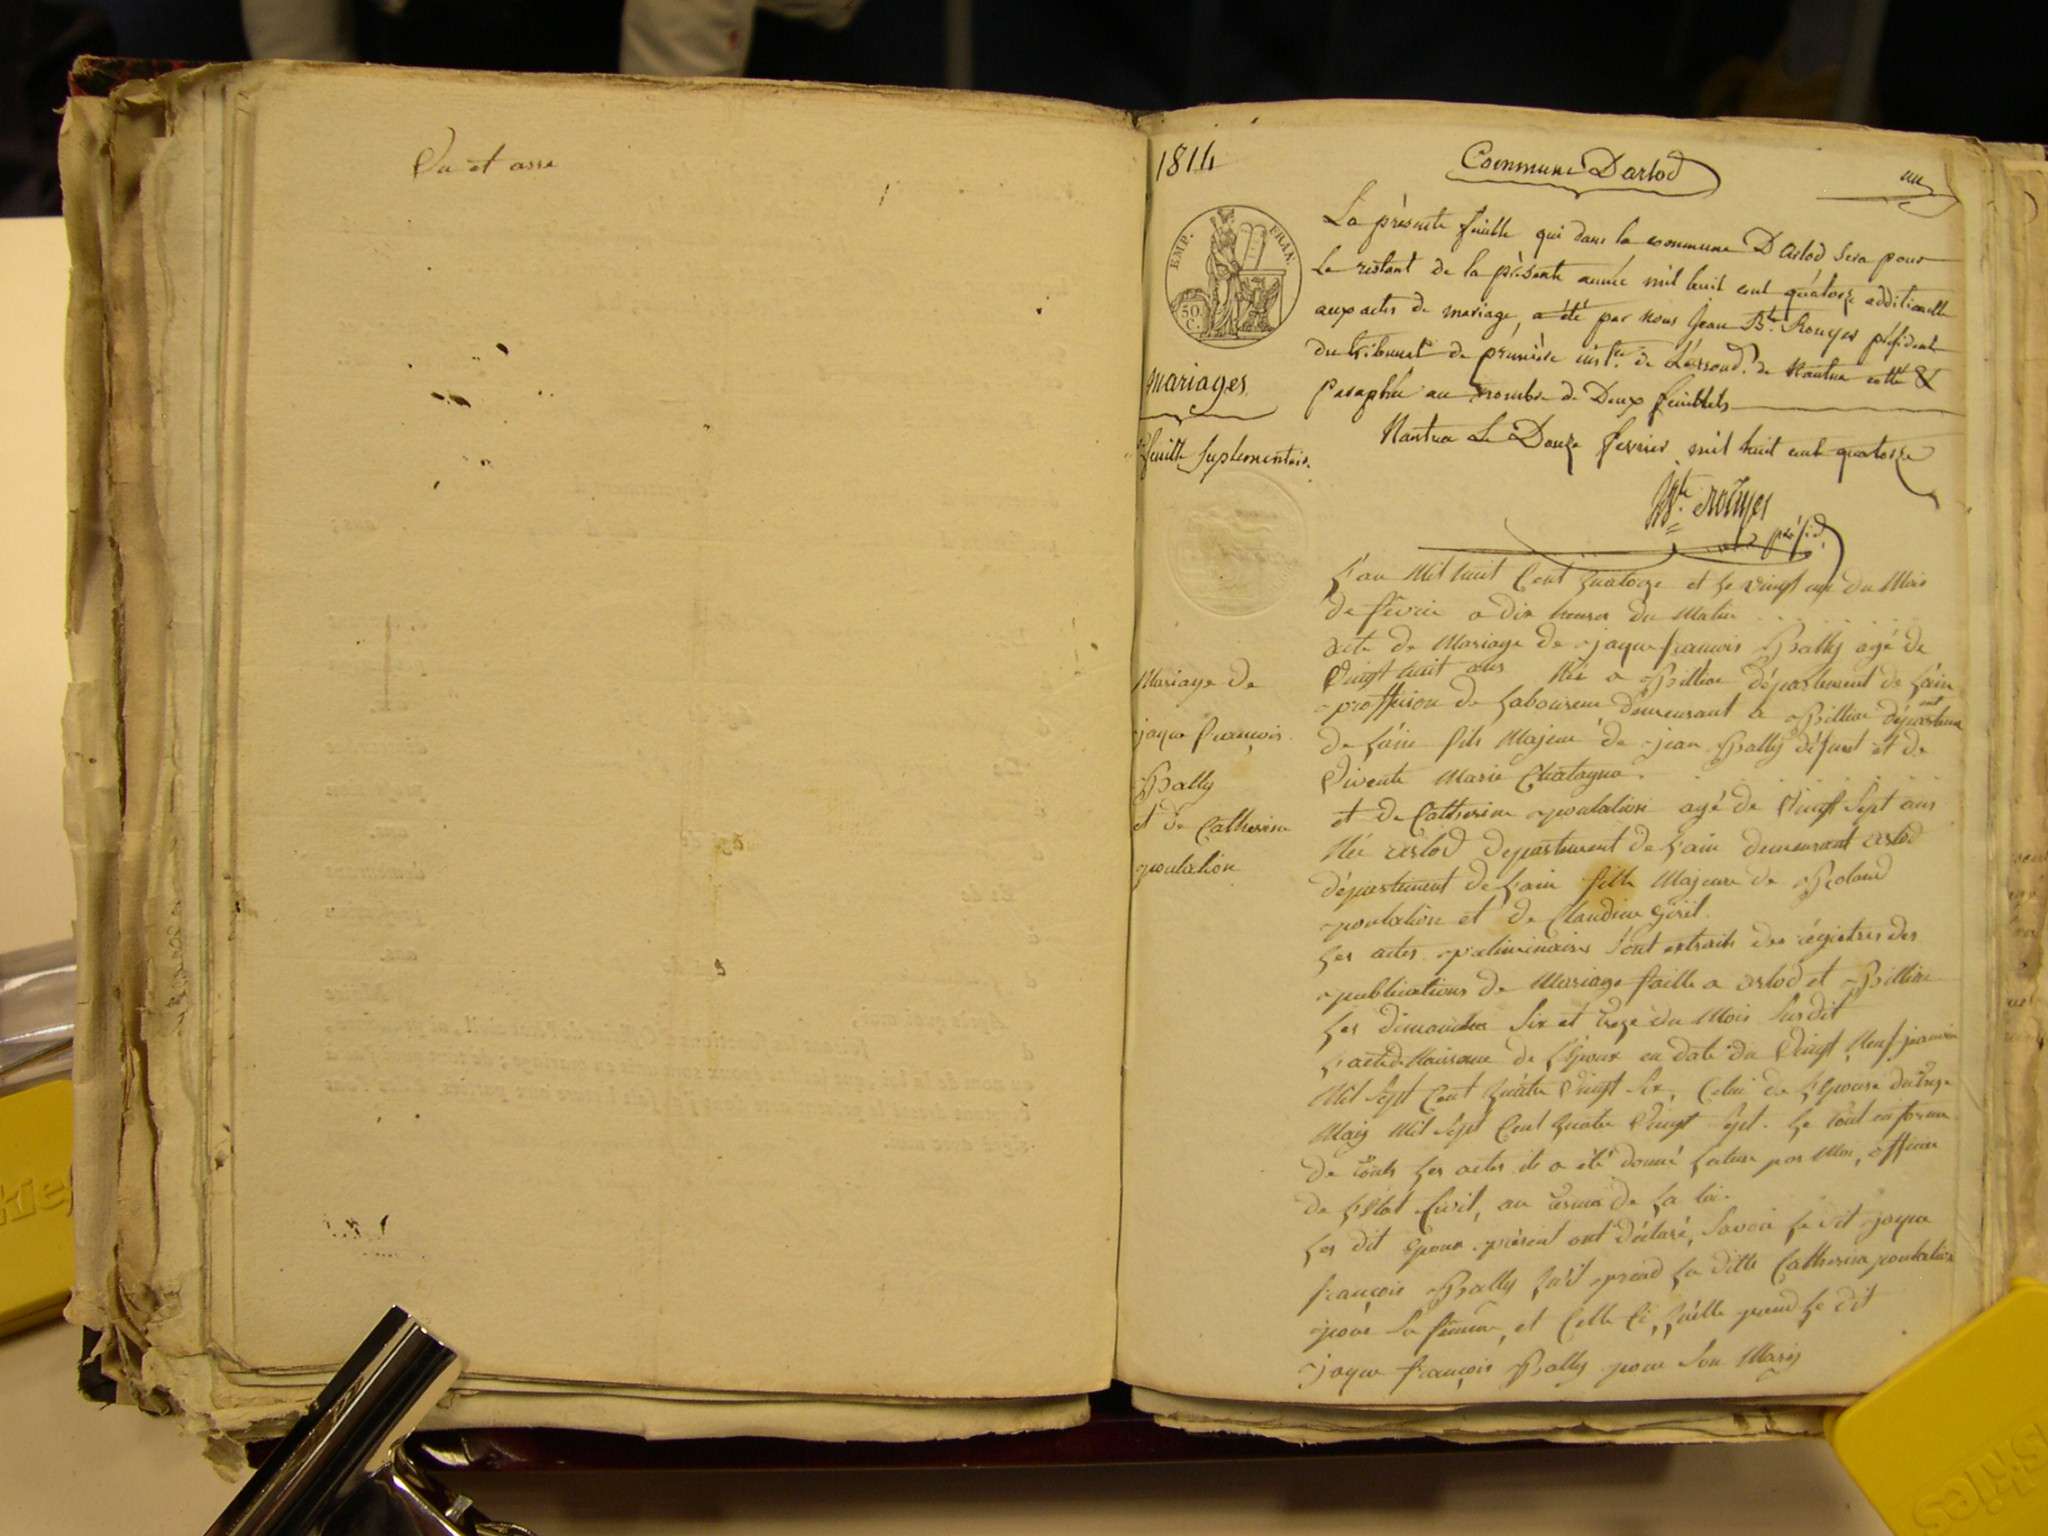 Vu et assé
1814
Commune D'arlod
un
EMP. FRAN.
50 C.
La présente feuille qui dans la commune D'arlod sera pour
Le restant de la présente année mil huit cent quatorze additionelle
aux actes de mariage, a été par Nous Jean Bte. Rouyer président
du tribunal de première inst.ce de L'arrond.t de Nantua cotté &
Paraphée au nombre de Deux feuillets
Nantua Le Douze fevrier mil huit cent quatorze
Mariages
feuille Suplementair.
Bte. Rouyer
présid.
L'an Mil huit Cent quatorze et le vingt un du Mois
de février a dix heures du Matin
acte de Mariage de jaque françois Bally agé de
Vingt huit ans Né a Billiac département de L'ain
proffesion de Laboureur demeurant a Billiac département
de L'ain fils Majeur de jean Bally défunt et de
Vivente Marie Chatagna.
et de Catherine poulation agé de Vingt Sept ans
Née arlod département de L'ain demeurant arlod
département de L'ain fille Majeure de Roland
poulation et de Claudine
Mariage de
jaque françois
Bally
et de Catherine
poulation
Les actes preliminaires Sont extraits des régistres des
publications de Mariage faille a arlod et Billiac
Les dimanches Six et treze du Mois Susdit
L'acte de Naissance de L'Epoux en date du Vingt Neuf janvier
Mil Sept Cent quatre Vingt Six, Celui de L'Epouse du treze
Mars Mil Sept Cent quatre Vingt Sept. Le tout en forme
de touts Les actes il a été donné Lecture par Moi, officier
de L'Etat Civil, au terme de La loi.
Les dit Epoux présent ont déclaré, Savoir Le dit jaque
françois Bally qu'il prend La ditte Catherine poulation
pour Sa femme, et Celle Ci, qu'elle prend Le dit
jaque françois Bally pour Son Maris